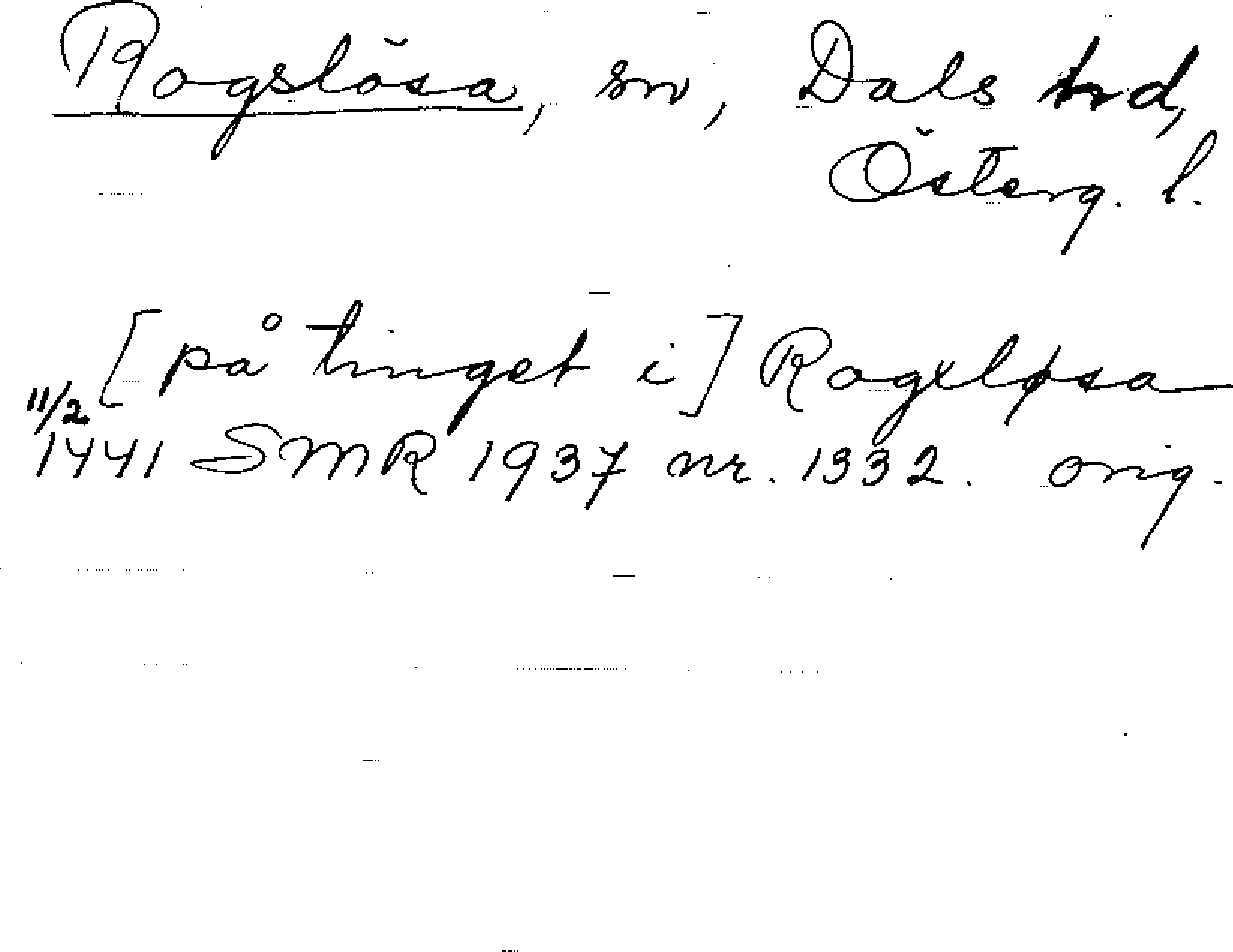 Rogslösa, sn, Dals hd,
Österg. l.
[på tinget i] Rogxløsa
11/2 1441 SMR 1937 nr. 1332. orig.